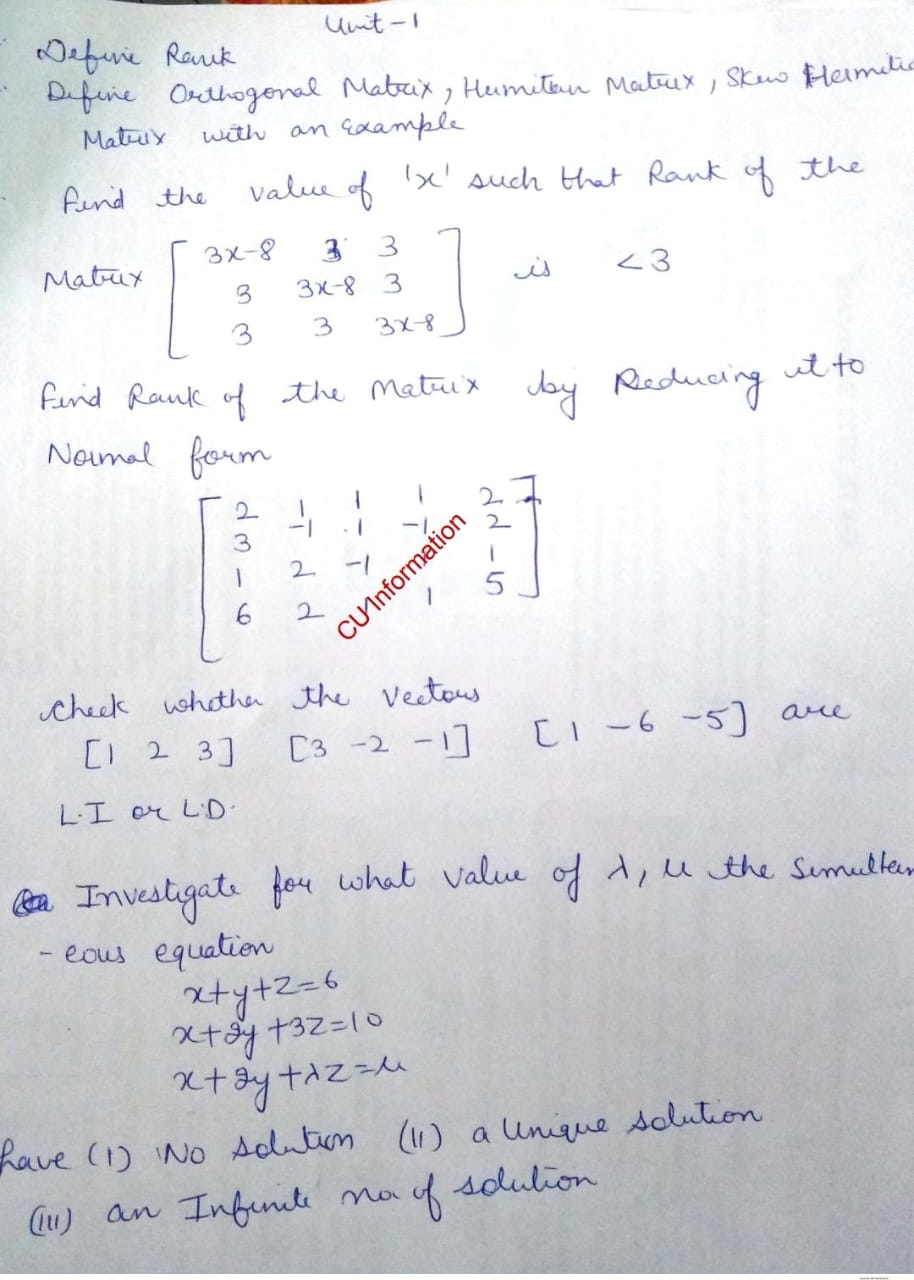 Unit-1
Define Rank
Define Orthogonal Matrix, Hermitian Matrix, Skew Hermitia
Matrix with an Example
find the value of 'x' such that Rank of the
Matrix [ 3x-8 3 3 is <3
3 3x-8 3
3 3 3x-8 ]
find Rank of the Matrix by Reducing it to
Normal form
[ 2 1 1 1 2
3 -1 1 -1 2
1 2 -1 1
6 2 1 5 ]
CU Information
Check whether the Vectors
[1 2 3] [3 -2 -1] [1 -6 -5] are
L.I or L.D.
Investigate for what value of λ, μ the Simultan
-eous equation
x+y+z=6
x+2y+3z=10
x+2y+λz=μ
have (i) No solution (ii) a Unique solution
(iii) an Infinite no of solution